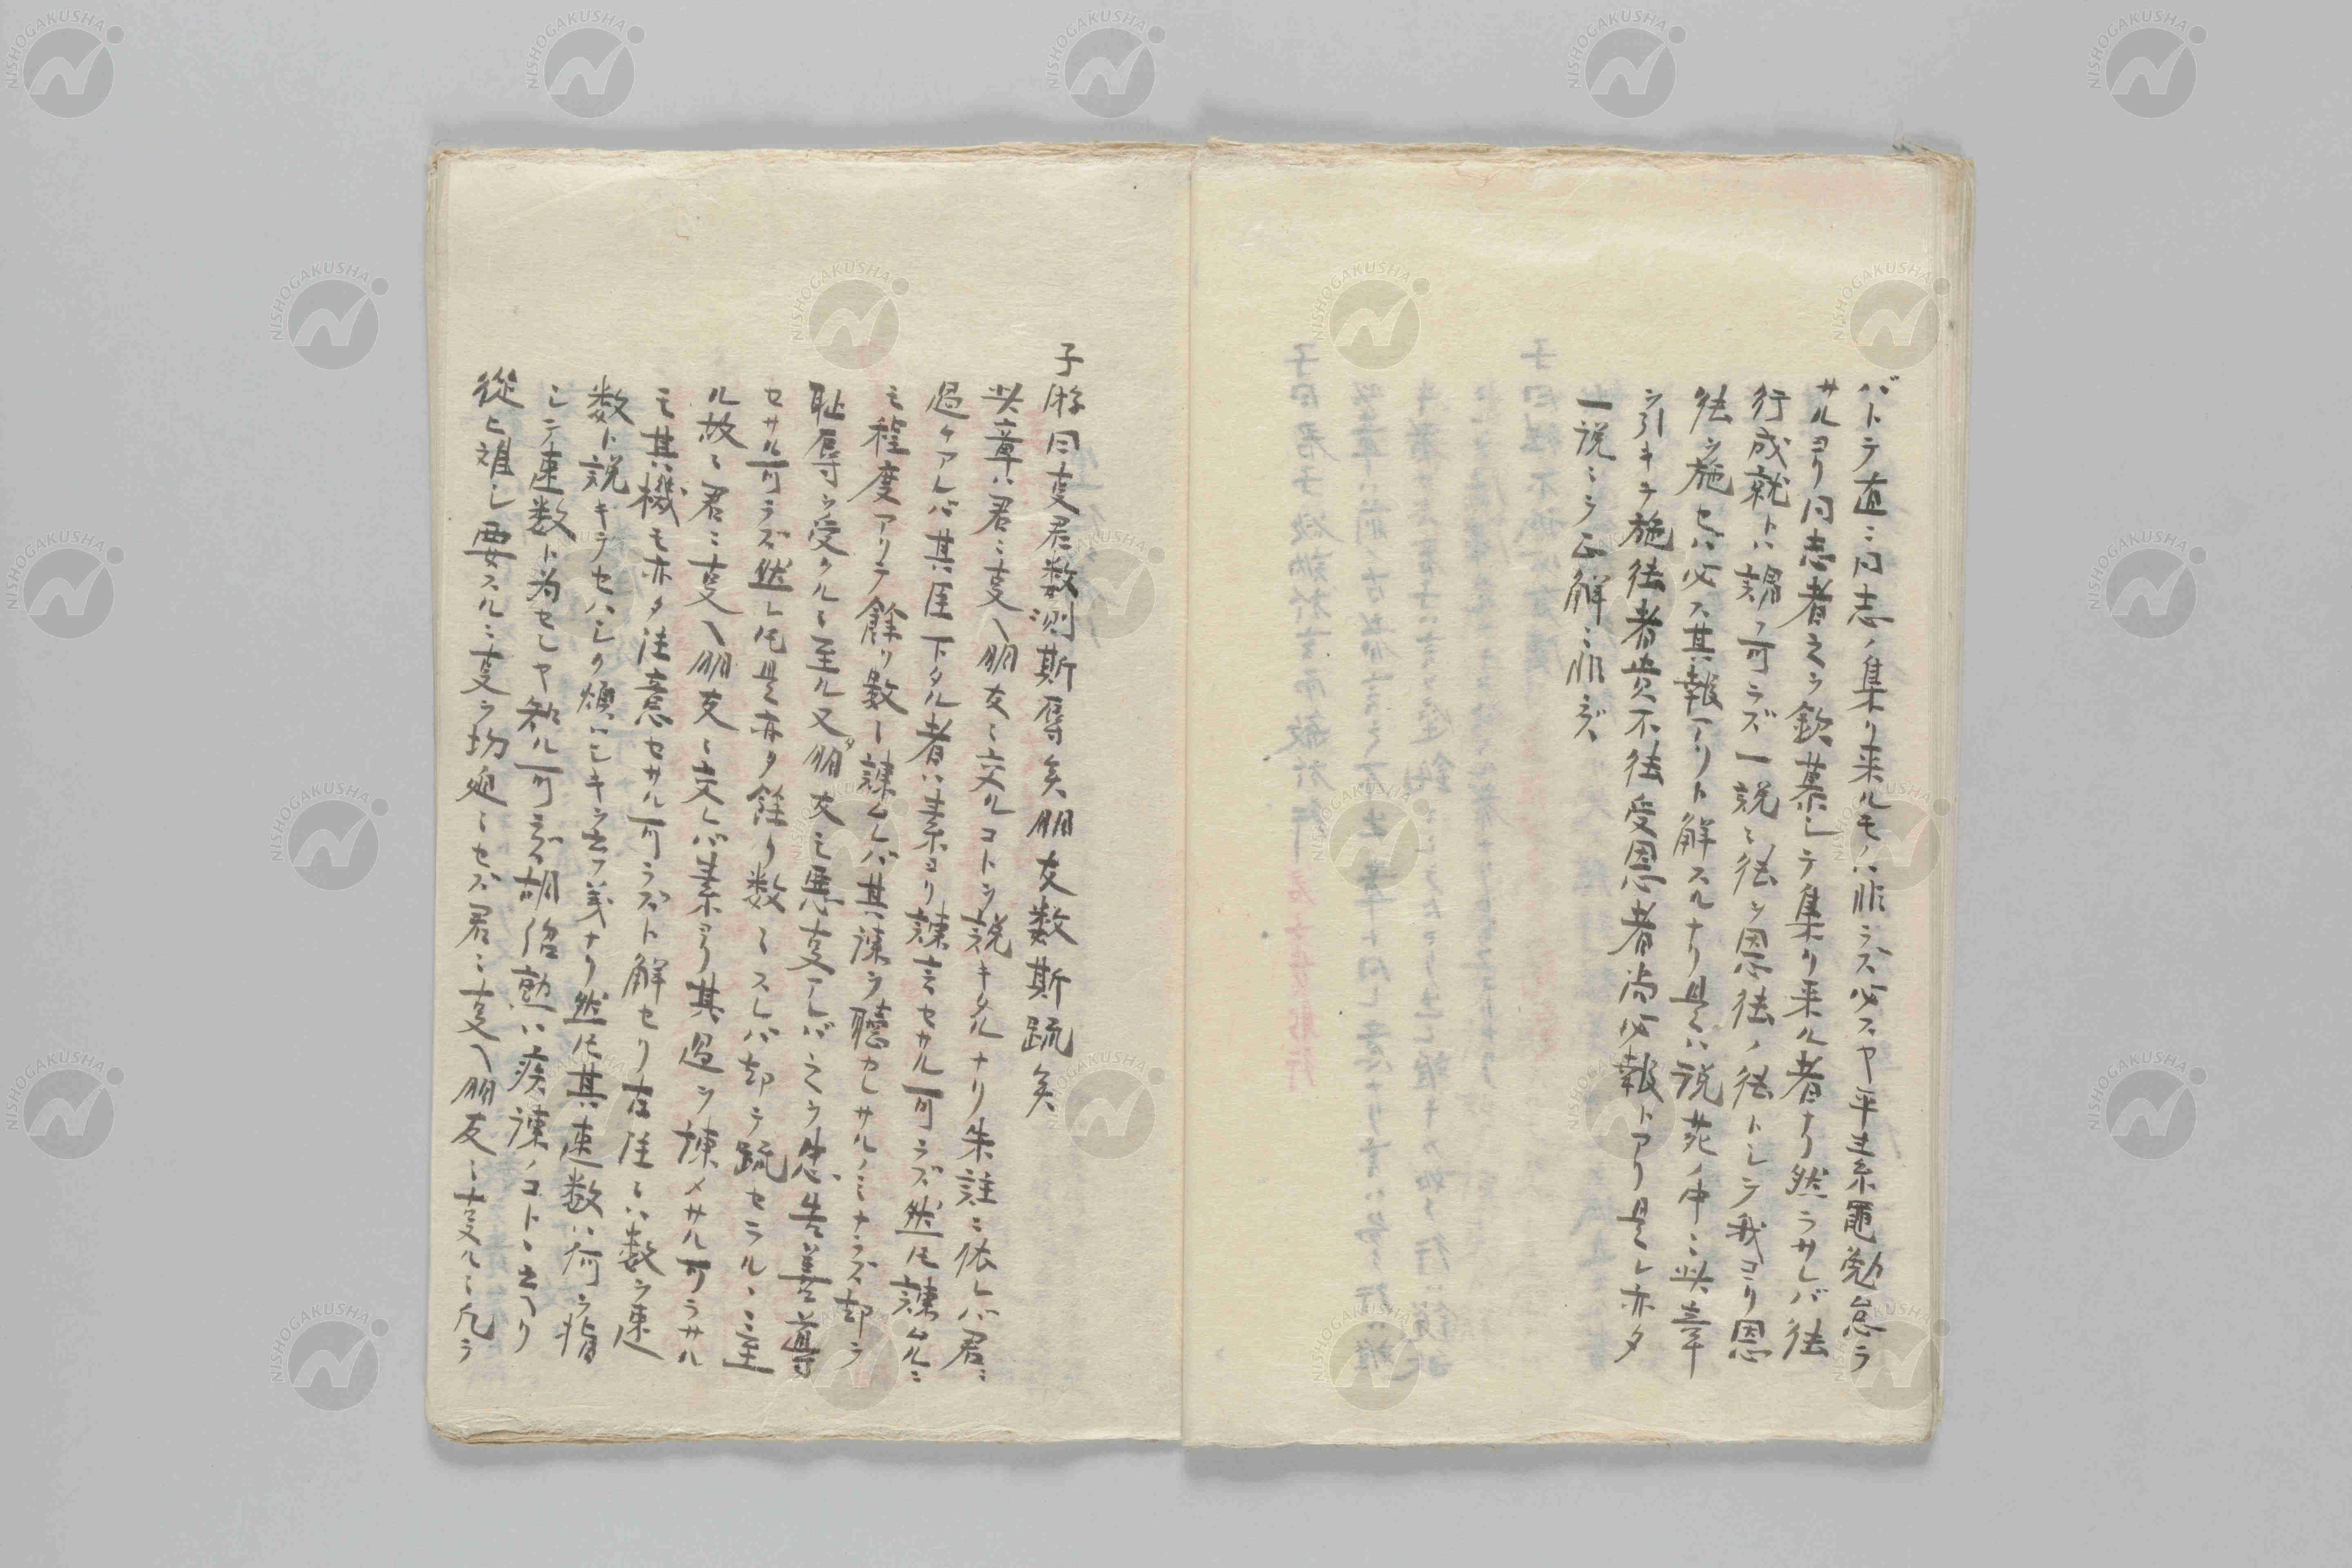 バトテ直ニ同志ノ集リ来ルモノハ非ラズ必スヤ平素黽勉怠ラ
サルヨリ同志者之ヲ欽慕シテ集リ来ル者ナリ然ラサレバ徳
行成就トハ謂フ可ラズ一説ニ徳ヲ恩徳ノ徳トシテ我ヨリ恩
徳ヲ施セハ必ス其報アリト解スルナリ是レハ説苑ノ中ニ此章
ヲ引キテ施徳者貴不徳受恩者尚必報トアリ是レ亦タ
一説ニシテ正解ニ非ズ
子游曰事君数測斯辱矣朋友数斯疏矣
此章ハ君ニ事ヘ朋友ニ交ルコトヲ説キタルナリ朱註ニ依レバ君ニ
過チアレバ其臣下タル者ハ素ヨリ諫言セサル可ラズ然ㇳモ諫ムルニ
モ程度アリテ餘リ数〻諫ムレバ其諫ヲ聴カレサルノミナラズ却テ
恥辱ヲ受クルニ至ル又タ朋友モ悪事アレバ之ヲ忠告善導
セサル可ラズ然レㇳモ是亦タ餘リ数〻スレバ却テ疏セラルヽニ至
ル故ニ君ニ事ヘ朋友ニ交レバ素ヨリ其過ヲ諫メサル可ラサル
モ其機モ亦タ注意セサル可ラズト解セリ古註ニハ数ヲ速
数ト説キテセハシク煩ハシキヲ云フ義ナリ然ㇳモ其速数ハ何ヲ指
シテ速数ト為セシヤ知ル可ラズ胡
従ヒ難シ要スルニ事ヲ切迫ニセズ君ニ事ヘ朋友ニ事ルニ凡テ
NISHOGAKUSHA